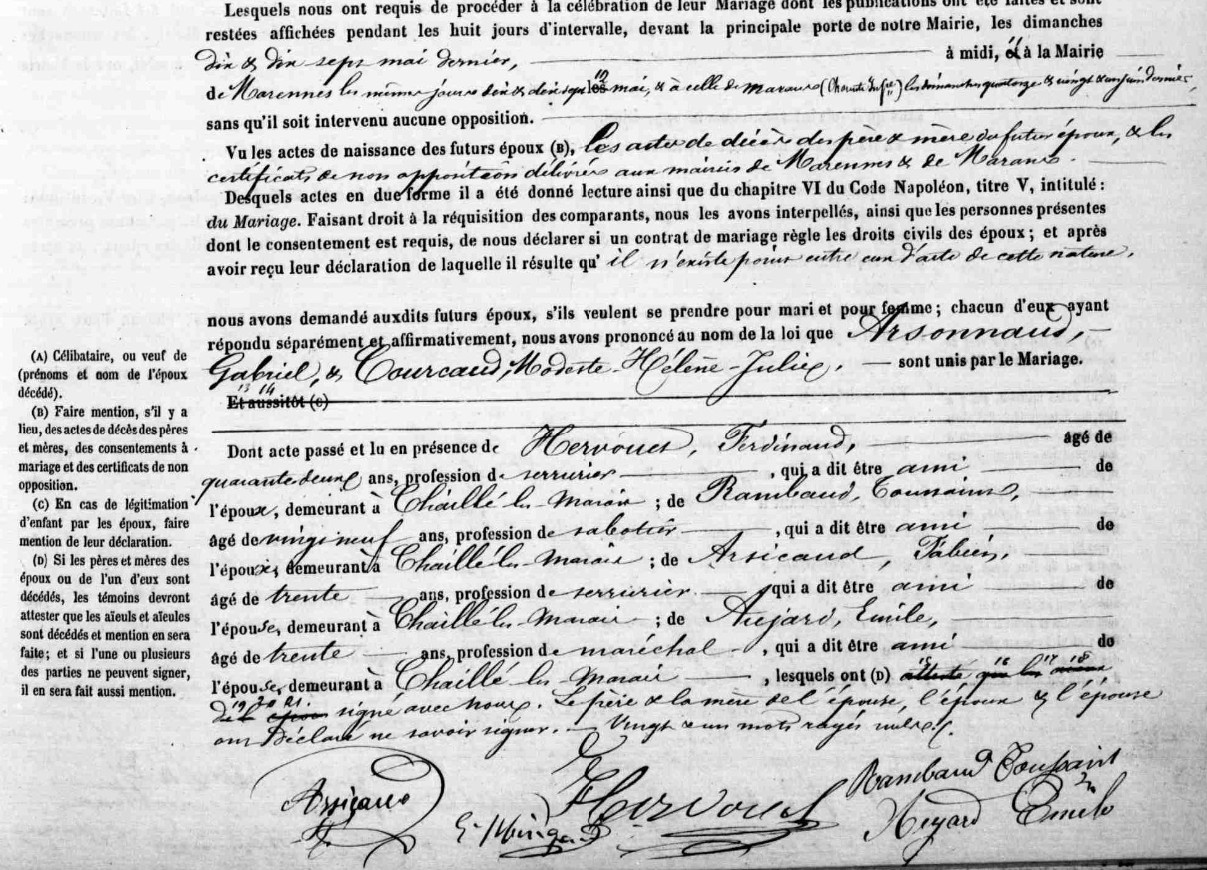 Lesquels nous ont requis de procéder à la célébration de leur Mariage dont les publications ont été faites et sont
restées affichées pendant les huit jours d'intervalle, devant la principale porte de notre Mairie, les dimanches
dix & dix sept mai dernier, à midi, et à la Mairie
de Marennes les mêmes jours dix & dix sept mai, & à celle de Marans les dimanches quatorze & vingt & un juin dernier,
sans qu'il soit intervenu aucune opposition.
Vu les actes de naissance des futurs époux (B), les actes de décès des père & mère du futur époux, & les
certificats de non opposition délivrés aux mairies de Marennes & de Marans.
Desquels actes en due forme il a été donné lecture ainsi que du chapitre VI du Code Napoléon, titre V, intitulé :
du Mariage. Faisant droit à la réquisition des comparants, nous les avons interpellés, ainsi que les personnes présentes
dont le consentement est requis, de nous déclarer si un contrat de mariage règle les droits civils des époux ; et après
avoir reçu leur déclaration de laquelle il résulte qu' il n'existe point entre eux d'acte de cette nature,
nous avons demandé auxdits futurs époux, s'ils veulent se prendre pour mari et pour femme ; chacun d'eux ayant
répondu séparément et affirmativement, nous avons prononcé au nom de la loi que Arsonnaud,
Gabriel, & Courcaud, Modeste-Hélène-Julie, sont unis par le Mariage.
13 14
Et aussitôt (C)
Dont acte passé et lu en présence de Hervouet, Ferdinand, âgé de
quarante deux ans, profession de serrurier, qui a dit être ami de
l'époux, demeurant à Chaillé les Marais ; de Rambaud, Toussaint,
âgé de vingt neuf ans, profession de sabotier, qui a dit être ami de
l'époux, demeurant à Chaillé les Marais ; de Arsicaud, Fabien,
âgé de trente ans, profession de serrurier, qui a dit être ami de
l'épouse, demeurant à Chaillé les Marais ; de Aujard, Emile,
âgé de trente ans, profession de maréchal, qui a dit être ami de
l'épouse, demeurant à Chaillé les Marais, lesquels ont (D) attesté que les aïeux
19 20 21
de époux signé avec nous. Le père & la mère de l'épouse, l'époux & l'épouse
ont déclaré ne savoir signer. Vingt & un mots rayés nuls.
Arsicaud
Hervouet
Rambaud Toussaint
Emile
(A) Célibataire, ou veuf de
(prénoms et nom de l'époux
décédé).
(B) Faire mention, s'il y a
lieu, des actes de décès des pères
et mères, des consentements à
mariage et des certificats de non
opposition.
(C) En cas de légitimation
d'enfant par les époux, faire
mention de leur déclaration.
(D) Si les pères et mères des
époux ou de l'un d'eux sont
décédés, les témoins devront
attester que les aïeuls et aïeules
sont décédés et mention en sera
faite ; et si l'une ou plusieurs
des parties ne peuvent signer,
il en sera fait aussi mention.